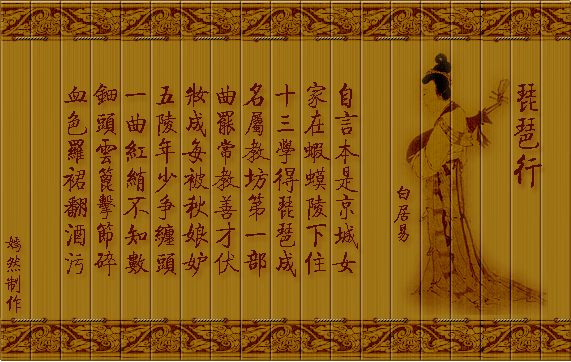 琵琶行
白居易
自言本是京城女
家在蝦蟆陵下住
十三學得琵琶成
名屬教坊第一部
曲罷常教善才伏
妝成每被秋娘妒
五陵年少爭纏頭
一曲紅綃不知數
鈿頭雲篦擊節碎
血色羅裙翻酒污
嫣然制作